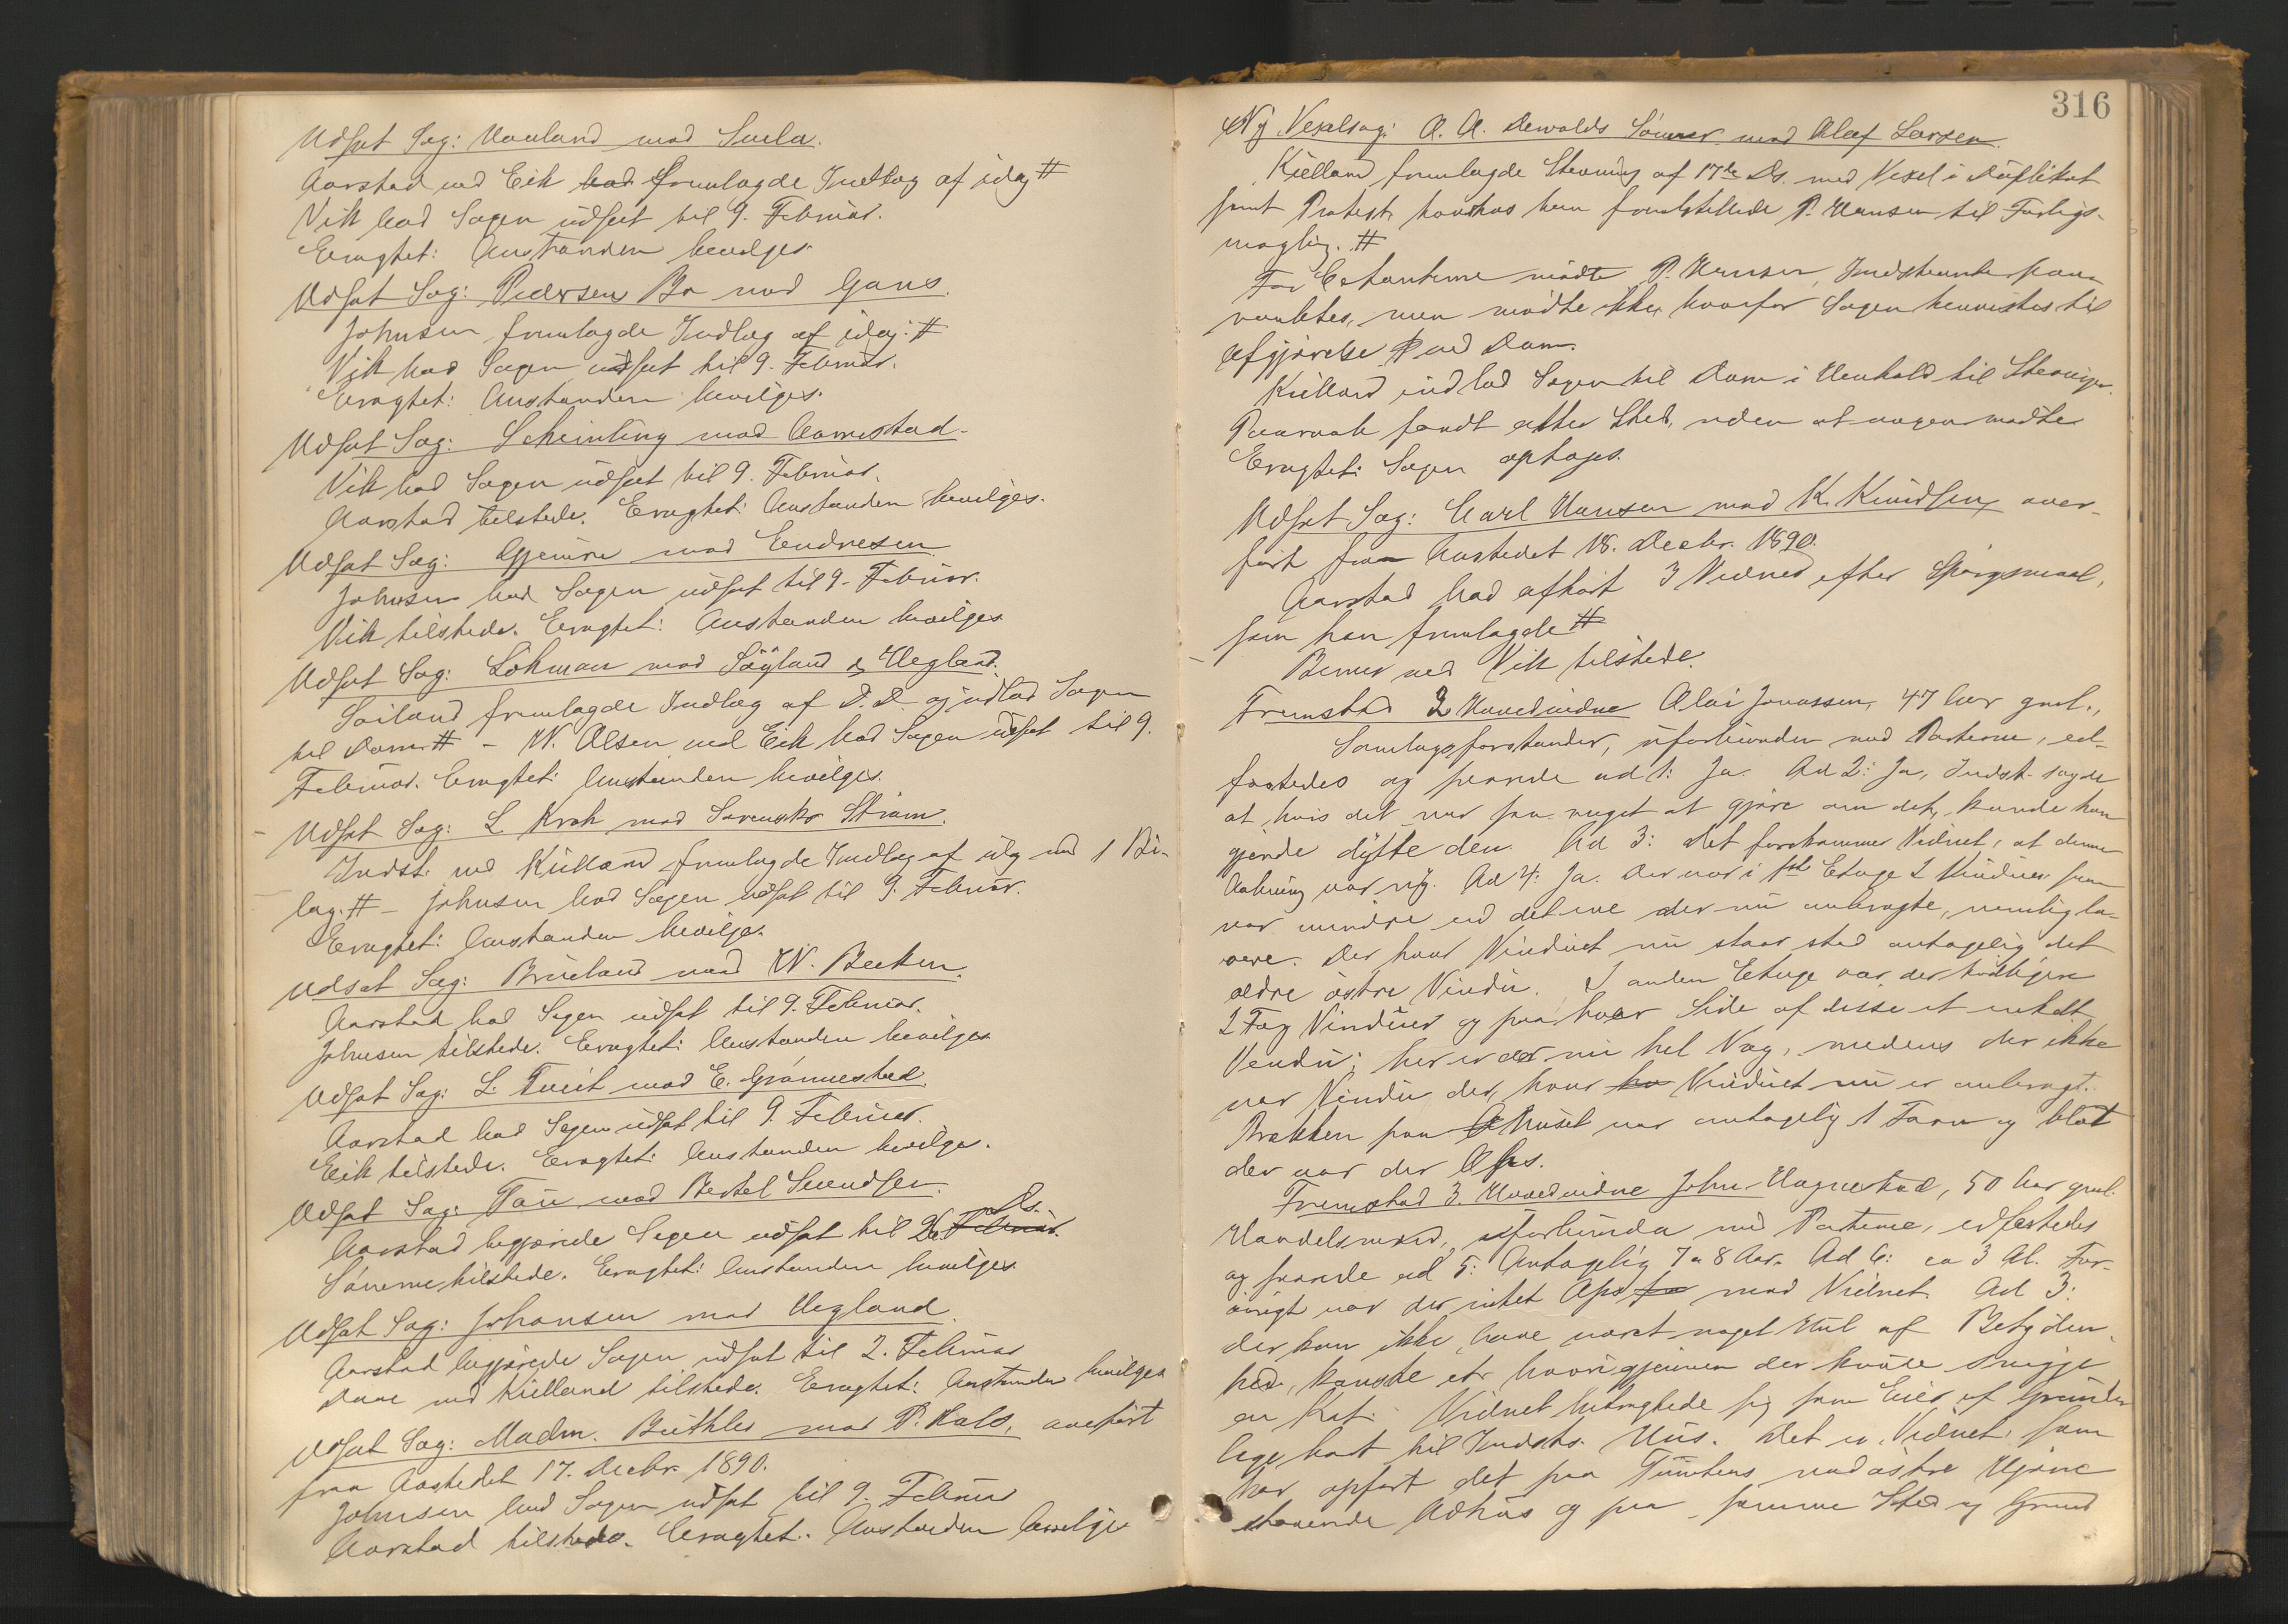 Udsat Sag: Vaaland mod Svela.
Aarstad ved Eik bad fremlagde Indlæg af idag #
Vik bad Sagen udsat til 9. Februar.
Eragtet: Anstanden bevilges.
Udsat Sag: Pedersen Bø mod Gaus.
Johnsen fremlagde Indlæg af idag: #
Vik bad Sagen udsat til 9. Februar.
Eragtet: Anstanden bevilges.
Udsat Sag: Scheinling mod Aarrestad.
Vik bad Sagen udsat til 9. Februar.
Aarstad tilstede. Eragtet: Anstanden bevilges.
Udsat Sag: Gjemre mod Endresen
Johnsen bad Sagen udsat til 9. Februar.
Vik tilstede. Eragtet: Anstanden bevilges
Udsat Sag: Löhman mod Söyland & Hegland.
Soiland fremlagde Indlæg af D.D. og indlod Sagen
til Dom # – W. Olsen ved Eik bad Sagen udsat til 9.
Februar. Eragtet: Anstanden bevilges.
Udsat Sag: L. Krok mod Strøm.
Indst. ved Kielland fremlagde Indlæg af idag med 1 Bi-
lag. # – Johnsen bad Sagen udsat til 9. Februar.
Eragtet: Anstanden bevilges.
Udsat Sag: Brueland mod W. Becken.
Aarstad bad Sagen udsat til 9. Februar.
Johnsen tilstede. Eragtet: Anstanden bevilges
Udsat Sag: L. Tveit mod E. Grønnestad.
Aarstad bad Sagen udsat til 9. Februar.
Eik tilstede. Eragtet: Anstanden bevilges.
Udsat Sag: Tou mod Bertel Svendsen.
Aarstad begjærede Sagen udsat til 26. Februar. Ds.
tilstede. Eragtet: Anstanden bevilges
Udsat Sag: Johansen mod Hegland.
Aarstad begjærede Sagen udsat til 2. Februar
Daae ved Kielland tilstede. Eragtet: Anstanden bevilges
Udsat Sag: Madm. mod P. Hals, overført
fra Aastedet 17. Decbr 1890.
Johnsen bad Sagen udsat til 9. Februar
Aarstad tilstede. Eragtet: Anstanden bevilges
316
Ny Vexelsag: O. A. Devolds Sønner mod Olaf Larsen.
Kielland fremlagde Stevning af 17de Ds. med Vexel i Duplikat
samt Protest, hvorhos han fremstillede P. Hansen til Forligs-
mægling. #
For Citanterne mødte P. Hansen, Indstevnte paa-
raabtes, men mødte ikke, hvorfor Sagen henvistes til
Afgjørelse ved Dom.
Kielland indlod Sagen til Dom i Henhold til Stevningen.
Paaraab fandt atter Sted, uden at nogen mødte
Eragtet: Sagen optages.
Udsat Sag: Carl Hansen mod K. Knudsen, over-
ført fra Aastedet 18. Decbr. 1890.
Aarstad bad afhørt 3 Vidner efter Spørgsmaal,
som han fremlagde #
Berner ved Vik tilstede.
Fremstod 2 Hovedvidne Olai Jonassen, 47 Aar gml.,
Samlagsforstander, uforbunden med Parterne, ed-
fæstedes og svarede ad 1: Ja. Ad 2: Ja, Indst. sagde
at hvis det var ham noget at gjøre om det, kunde han
gjerne dytte den. Ad 3: Det forekommer Vidnet, at denne
Aabning var ny. Ad 4: Ja. Der var i 1ste Etage 2 Vinduer som
var mindre end det ene der nu anbragte, nemlig la-
vere. Der hvor Vinduet nu staar stod antagelig det
ældre østre Vindu. I anden Etage var der tidligere
2 Fag Vinduer og paa hver Side af disse et enkelt
Vindu; her er der nu hel Væg, medens der ikke
var Vindu der, hvor Vinduet nu er anbragt.
Brækken paa Huset var antagelig 1 Favn og blot
der var der Ops.
Fremstod 3. Hovedvidne John Hognestad, 50 Aar gml.
Handelsmand, uforbunden med Parterne, edfæstedes
og svarede ad 5: Antagelig 7 a 8 Aar. Ad 6: ca 3 Al. For-
øvrigt var der intet Ops mod Vidnet. Ad 3:
der kan ikke have været noget Hul af Betyden-
hed, kanske et, hvorigjennem der kunde smyge
en Kat. Vidnet betragtede sig som Eier af Grunden
lige bort til Indsts. Hus. Det er Vidnet, som
har opført det paa Tomtens nordøstre Hjørne
staaende Udhus og paa samme Sted og Grund